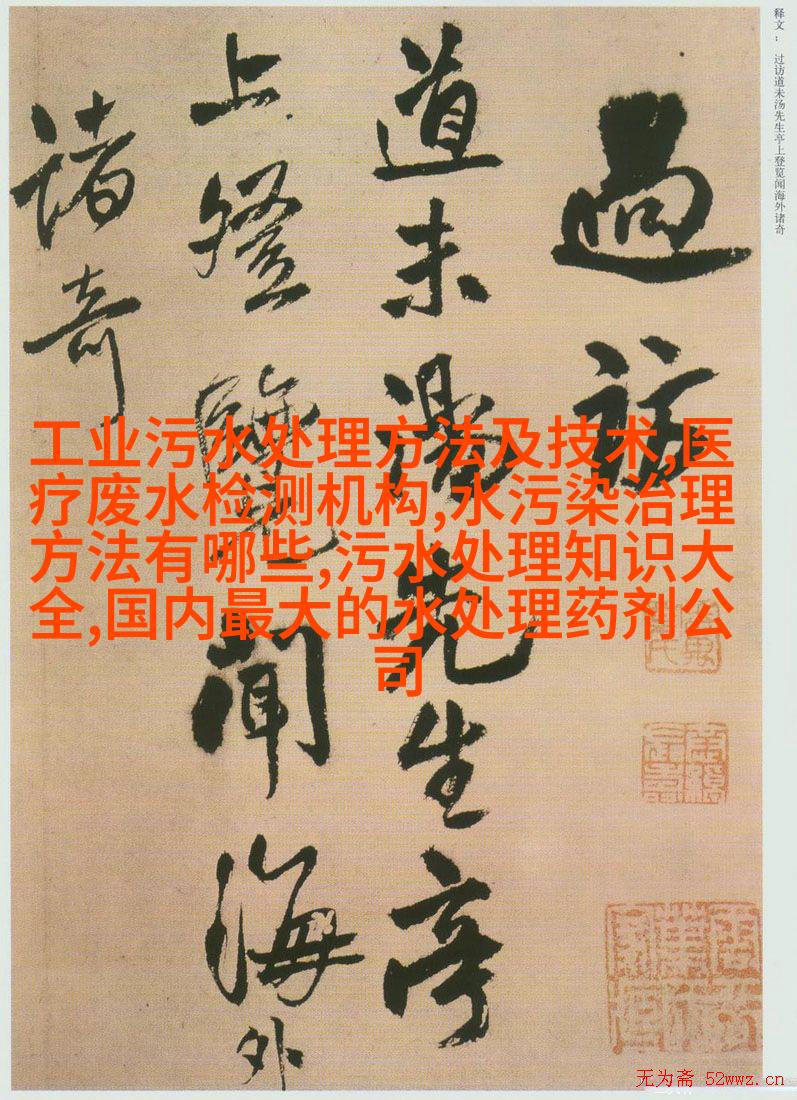 释文： 过访道未汤先生亭上登览闻海外诸奇
過訪
道未湯先生亭
上登覽聞海外
諸奇
工业污水处理方法及技术,医
疗废水检测机构,水污染治理
方法有哪些,污水处理知识大
全,国内最大的水处理药剂公
司
无为斋 52wwz.cn